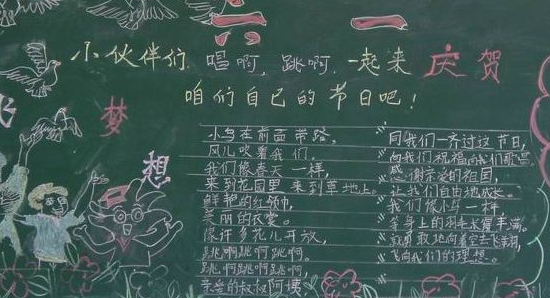 六一
小伙伴们,唱啊,跳啊,一起来庆贺
咱们自己的节日吧!
飞
梦
想
小鸟在前面带路。
风儿吹着我们。
我们像春天一样,
来到花园里 来到草地上。
鲜艳的红领巾,
美丽的衣裳。
像许多花儿开放,
跳啊跳啊跳啊,
跳啊啊跳啊跳啊。
亲爱的叔叔阿姨
同我们一齐过这节日,
向我们祝福向我们歌唱
感谢亲爱的祖国,
让我们自由地成长。
我们像小鸟一样
等身上的羽毛长得丰满。
就勇敢地向着空飞翔
飞向我们的理想。